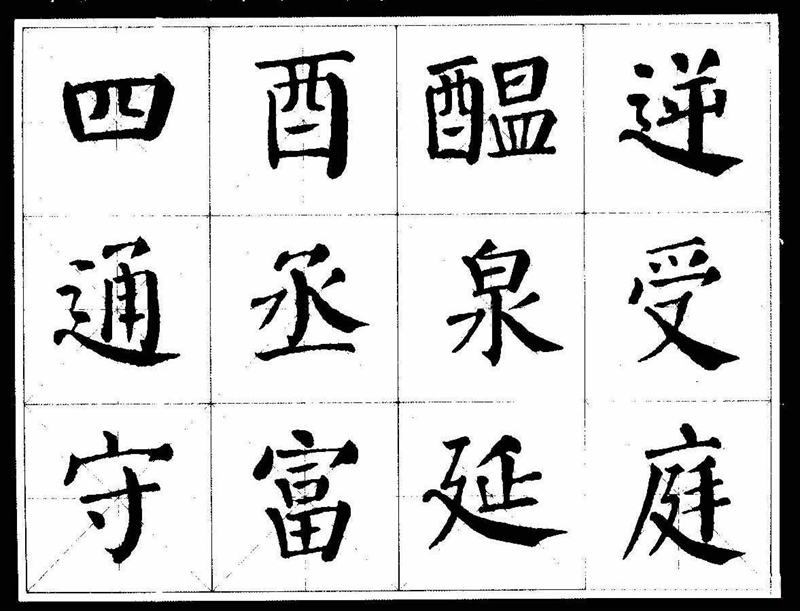 四酉醖逆
通丞泉受
守富延庭